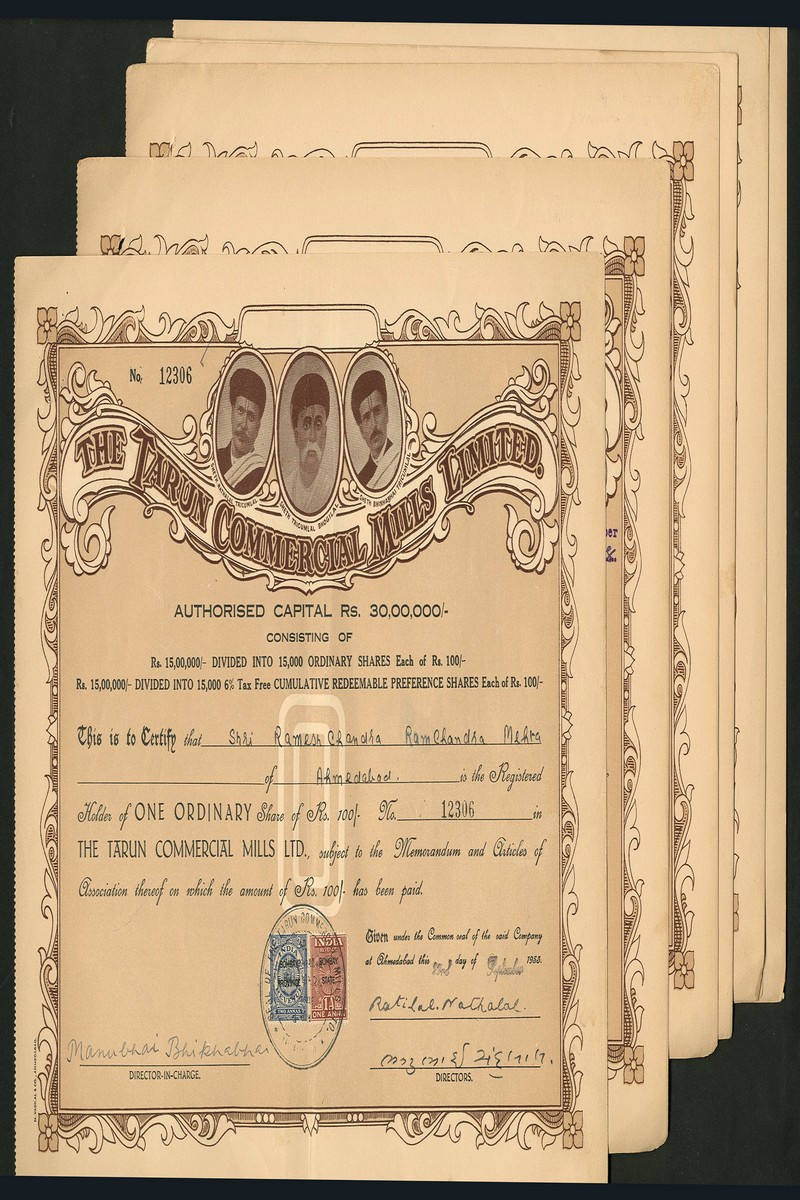 No. 12306
SHETH TRICUMLAL BHOGILAL
THE TARUN COMMERCIAL MILLS LIMITED.
AUTHORISED CAPITAL Rs. 30,00,000/-
CONSISTING OF
Rs. 15,00,000/- DIVIDED INTO 15,000 ORDINARY SHARES Each of Rs. 100/-
Rs. 15,00,000/- DIVIDED INTO 15,000 6% Tax Free CUMULATIVE REDEEMABLE PREFERENCE SHARES Each of Rs. 100/-
This is to Certify that Shri Ramesh Chandra Ramchandra Mehta
of Ahmedabad. is the Registered
Holder of ONE ORDINARY Share of Rs. 100/- No. 12306 in
THE TARUN COMMERCIAL MILLS LTD., subject to the Memorandum and Articles of
Association thereof on which the amount of Rs. 100/- has been paid.
Given under the Common seal of the said Company
at Ahmedabad this day of September 1953.
INDIA INDIA
BOMBAY BOMBAY
PROVINCE STATE
TWO ANNAS ONE ANNA
Ratilal Nathalal.
Manubhai Bhikhabhai
DIRECTOR-IN-CHARGE.
DIRECTORS.